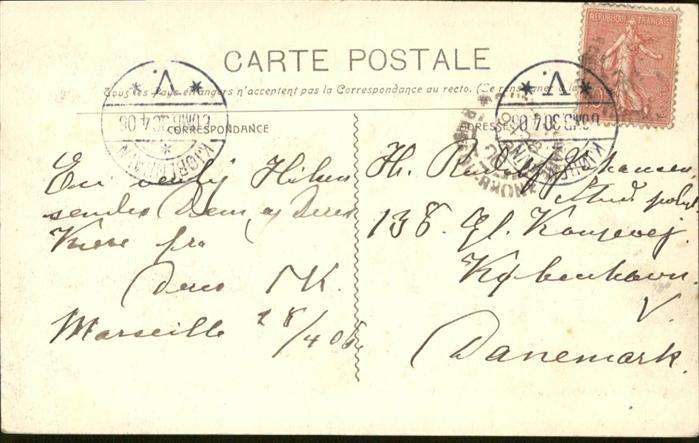 CARTE POSTALE
Tous les pays étrangers n'acceptent pas la Correspondance au recto. (Se renseigner à la
CORRESPONDANCE
ADRESSE
REPUBLIQUE FRANÇAISE
KJØBENHAVN
V.
30.4.06
En venlig Hilsen
sendes Dem, og Deres
Kære fra
Deres
Marseille 28/4 06
Hr. Johansen
Stud. polyt
138 Gl. Kongevej
København
V.
Danemark.